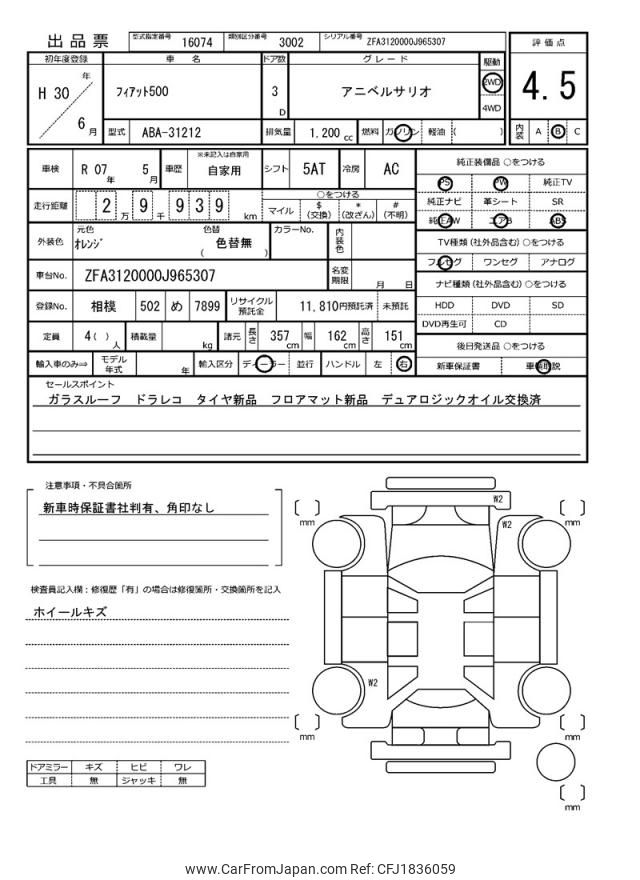 出品票 型式指定番号 16074 類別区分番号 3002 シリアル番号 ZFA3120000J965307
評価点
4.5
内装 A B C
初年度登録 車名 ドア数 グレード 駆動
H 30 年 6 月
フィアット500 3 D アニベルサリオ 2WD 4WD
型式 ABA-31212 排気量 1.200 cc 燃料 ガソリン 軽油 ( )
車検 R 07 年 5 月 車歴 ※未記入は自家用 自家用 シフト 5AT 冷房 AC
走行距離 2 万 9 千 9 3 9 km
○をつける
マイル $ (交換) * (改ざん) # (不明)
外装色 元色 オレンジ 色替 ( 色替無 ) カラーNo. 内装色
車台No. ZFA3120000J965307 名変期限 月 日
登録No. 相模 502 め 7899 リサイクル預託金 11,810円預託済 未預託
定員 4( ) 人 積載量 kg 諸元 長さ 357 cm 幅 162 cm 高さ 151 cm
輸入車のみ⇒ モデル年式 年 輸入区分 ディーラー 並行 ハンドル 左 右
純正装備品 ○をつける
PS PW 純正TV
純正ナビ 革シート SR
純正AW エアB ABS
TV種類 (社外品含む) ○をつける
フルセグ ワンセグ アナログ
ナビ種類 (社外品含む) ○をつける
HDD DVD SD
DVD再生可 CD
後日発送品 ○をつける
新車保証書 車輌取説
セールスポイント
ガラスルーフ ドラレコ タイヤ新品 フロアマット新品 デュアロジックオイル交換済
注意事項・不具合箇所
新車時保証書社判有、角印なし
検査員記入欄:修復歴「有」の場合は修復箇所・交換箇所を記入
ホイールキズ
ドアミラー キズ ヒビ ワレ
工具 無 ジャッキ 無
W2
W2
W2
mm
mm
mm
mm
mm
www.CarFromJapan.com Ref: CFJ1836059